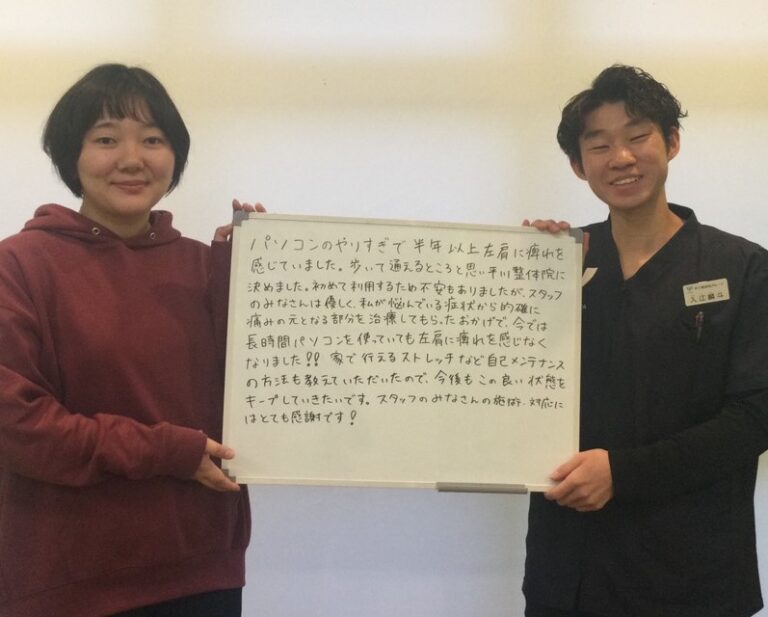 パソコンのやりすぎで半年以上左肩に痺れを
感じていました。歩いて通えるところと思い平川整体院に
決めました。初めて利用するため不安もありましたが、スタッフ
のみなさんは優しく、私が悩んでいる症状から的確に
痛みの元となる部分を治療してもらったおかげで、今では
長時間パソコンを使っていても左肩に痺れを感じなく
なりました!! 家で行えるストレッチなど自己メンテナンス
の方法も教えていただいたので、今後もこの良い状態を
キープしていきたいです。スタッフのみなさんの施術・対応に
はとても感謝です!
入江